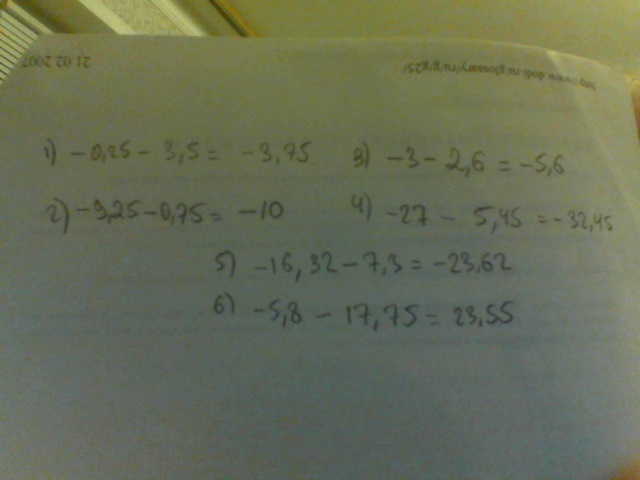 http://www.dodi.ru/glossary/ru/g/g25/
21.02.2007
1) -0,25 - 3,5 = -3,75 3) -3 - 2,6 = -5,6
2) -9,25 - 0,75 = -10 4) -27 - 5,45 = -32,45
5) -16,32 - 7,3 = -23,62
6) -5,8 - 17,75 = 23,55